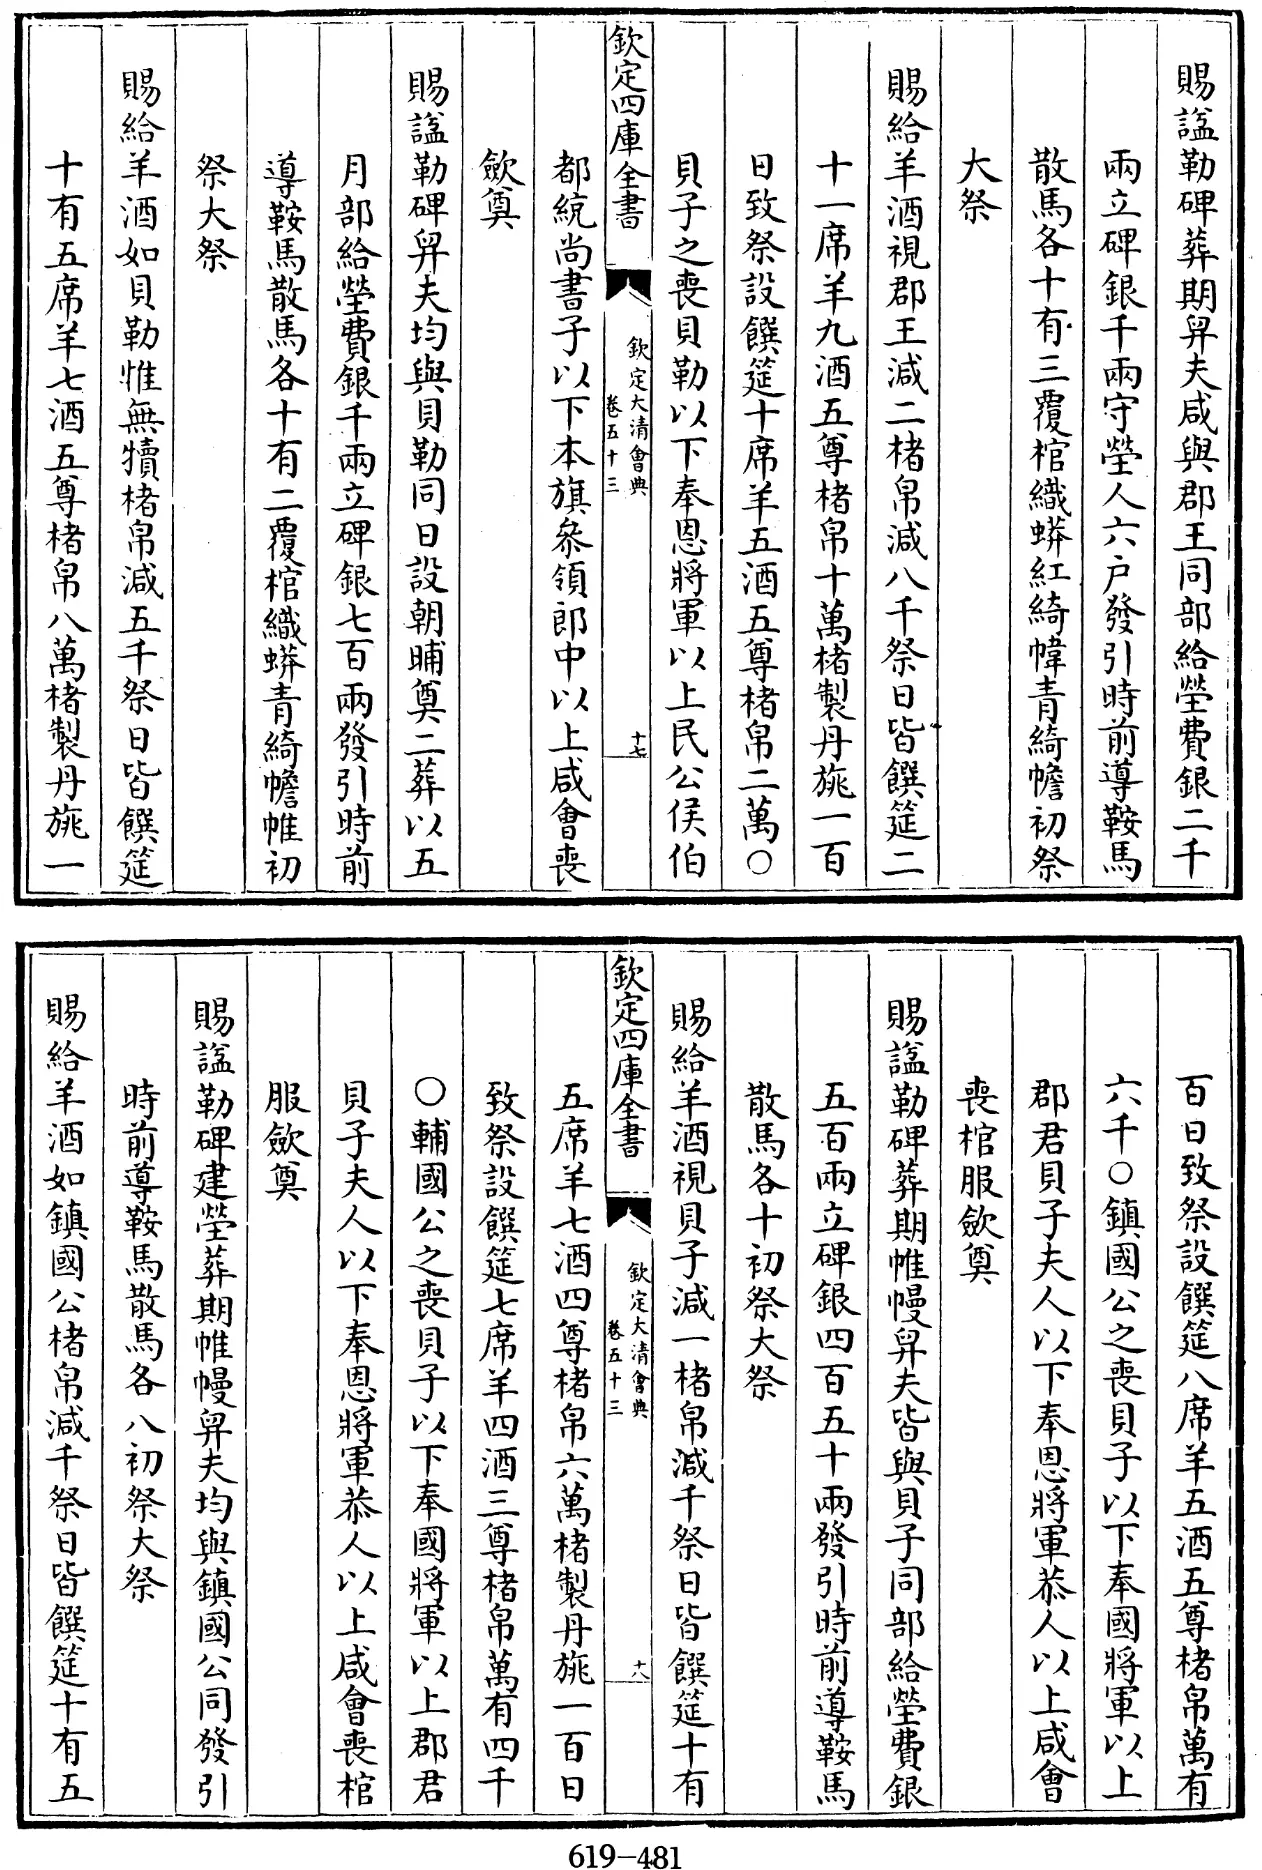 賜諡勒碑葬期舁夫咸與郡王同部給塋費銀二千
兩立碑銀千兩守塋人六户發引時前導鞍馬
散馬各十有三覆棺織蟒紅綺幃青綺幨初祭
大祭
賜給羊酒視郡王減二楮帛減八千祭日皆饌筵二
十一席羊九酒五尊楮帛十萬楮製丹旐一百
日致祭設饌筵十席羊五酒五尊楮帛二萬○
貝子之喪貝勒以下奉恩將軍以上民公侯伯
欽定四庫全書
欽定大清會典
卷五十三
十七
都統尚書子以下本旗叅領郎中以上咸會喪
歛奠
賜諡勒碑舁夫均與貝勒同日設朝晡奠二葬以五
月部給塋費銀千兩立碑銀七百兩發引時前
導鞍馬散馬各十有二覆棺織蟒青綺幨帷初
祭大祭
賜給羊酒如貝勒惟無犢楮帛減五千祭日皆饌筵
十有五席羊七酒五尊楮帛八萬楮製丹旐一
百日致祭設饌筵八席羊五酒五尊楮帛萬有
六千○鎮國公之喪貝子以下奉國將軍以上
郡君貝子夫人以下奉恩將軍恭人以上咸會
喪棺服歛奠
賜諡勒碑葬期帷幔舁夫皆與貝子同部給塋費銀
五百兩立碑銀四百五十兩發引時前導鞍馬
散馬各十初祭大祭
賜給羊酒視貝子減一楮帛減千祭日皆饌筵十有
欽定四庫全書
欽定大清會典
卷五十三
十八
五席羊七酒四尊楮帛六萬楮製丹旐一百日
致祭設饌筵七席羊四酒三尊楮帛萬有四千
○輔國公之喪貝子以下奉國將軍以上郡君
貝子夫人以下奉恩將軍恭人以上咸會喪棺
服歛奠
賜諡勒碑建塋葬期帷幔舁夫均與鎮國公同發引
時前導鞍馬散馬各八初祭大祭
賜給羊酒如鎮國公楮帛減千祭日皆饌筵十有五
619-481